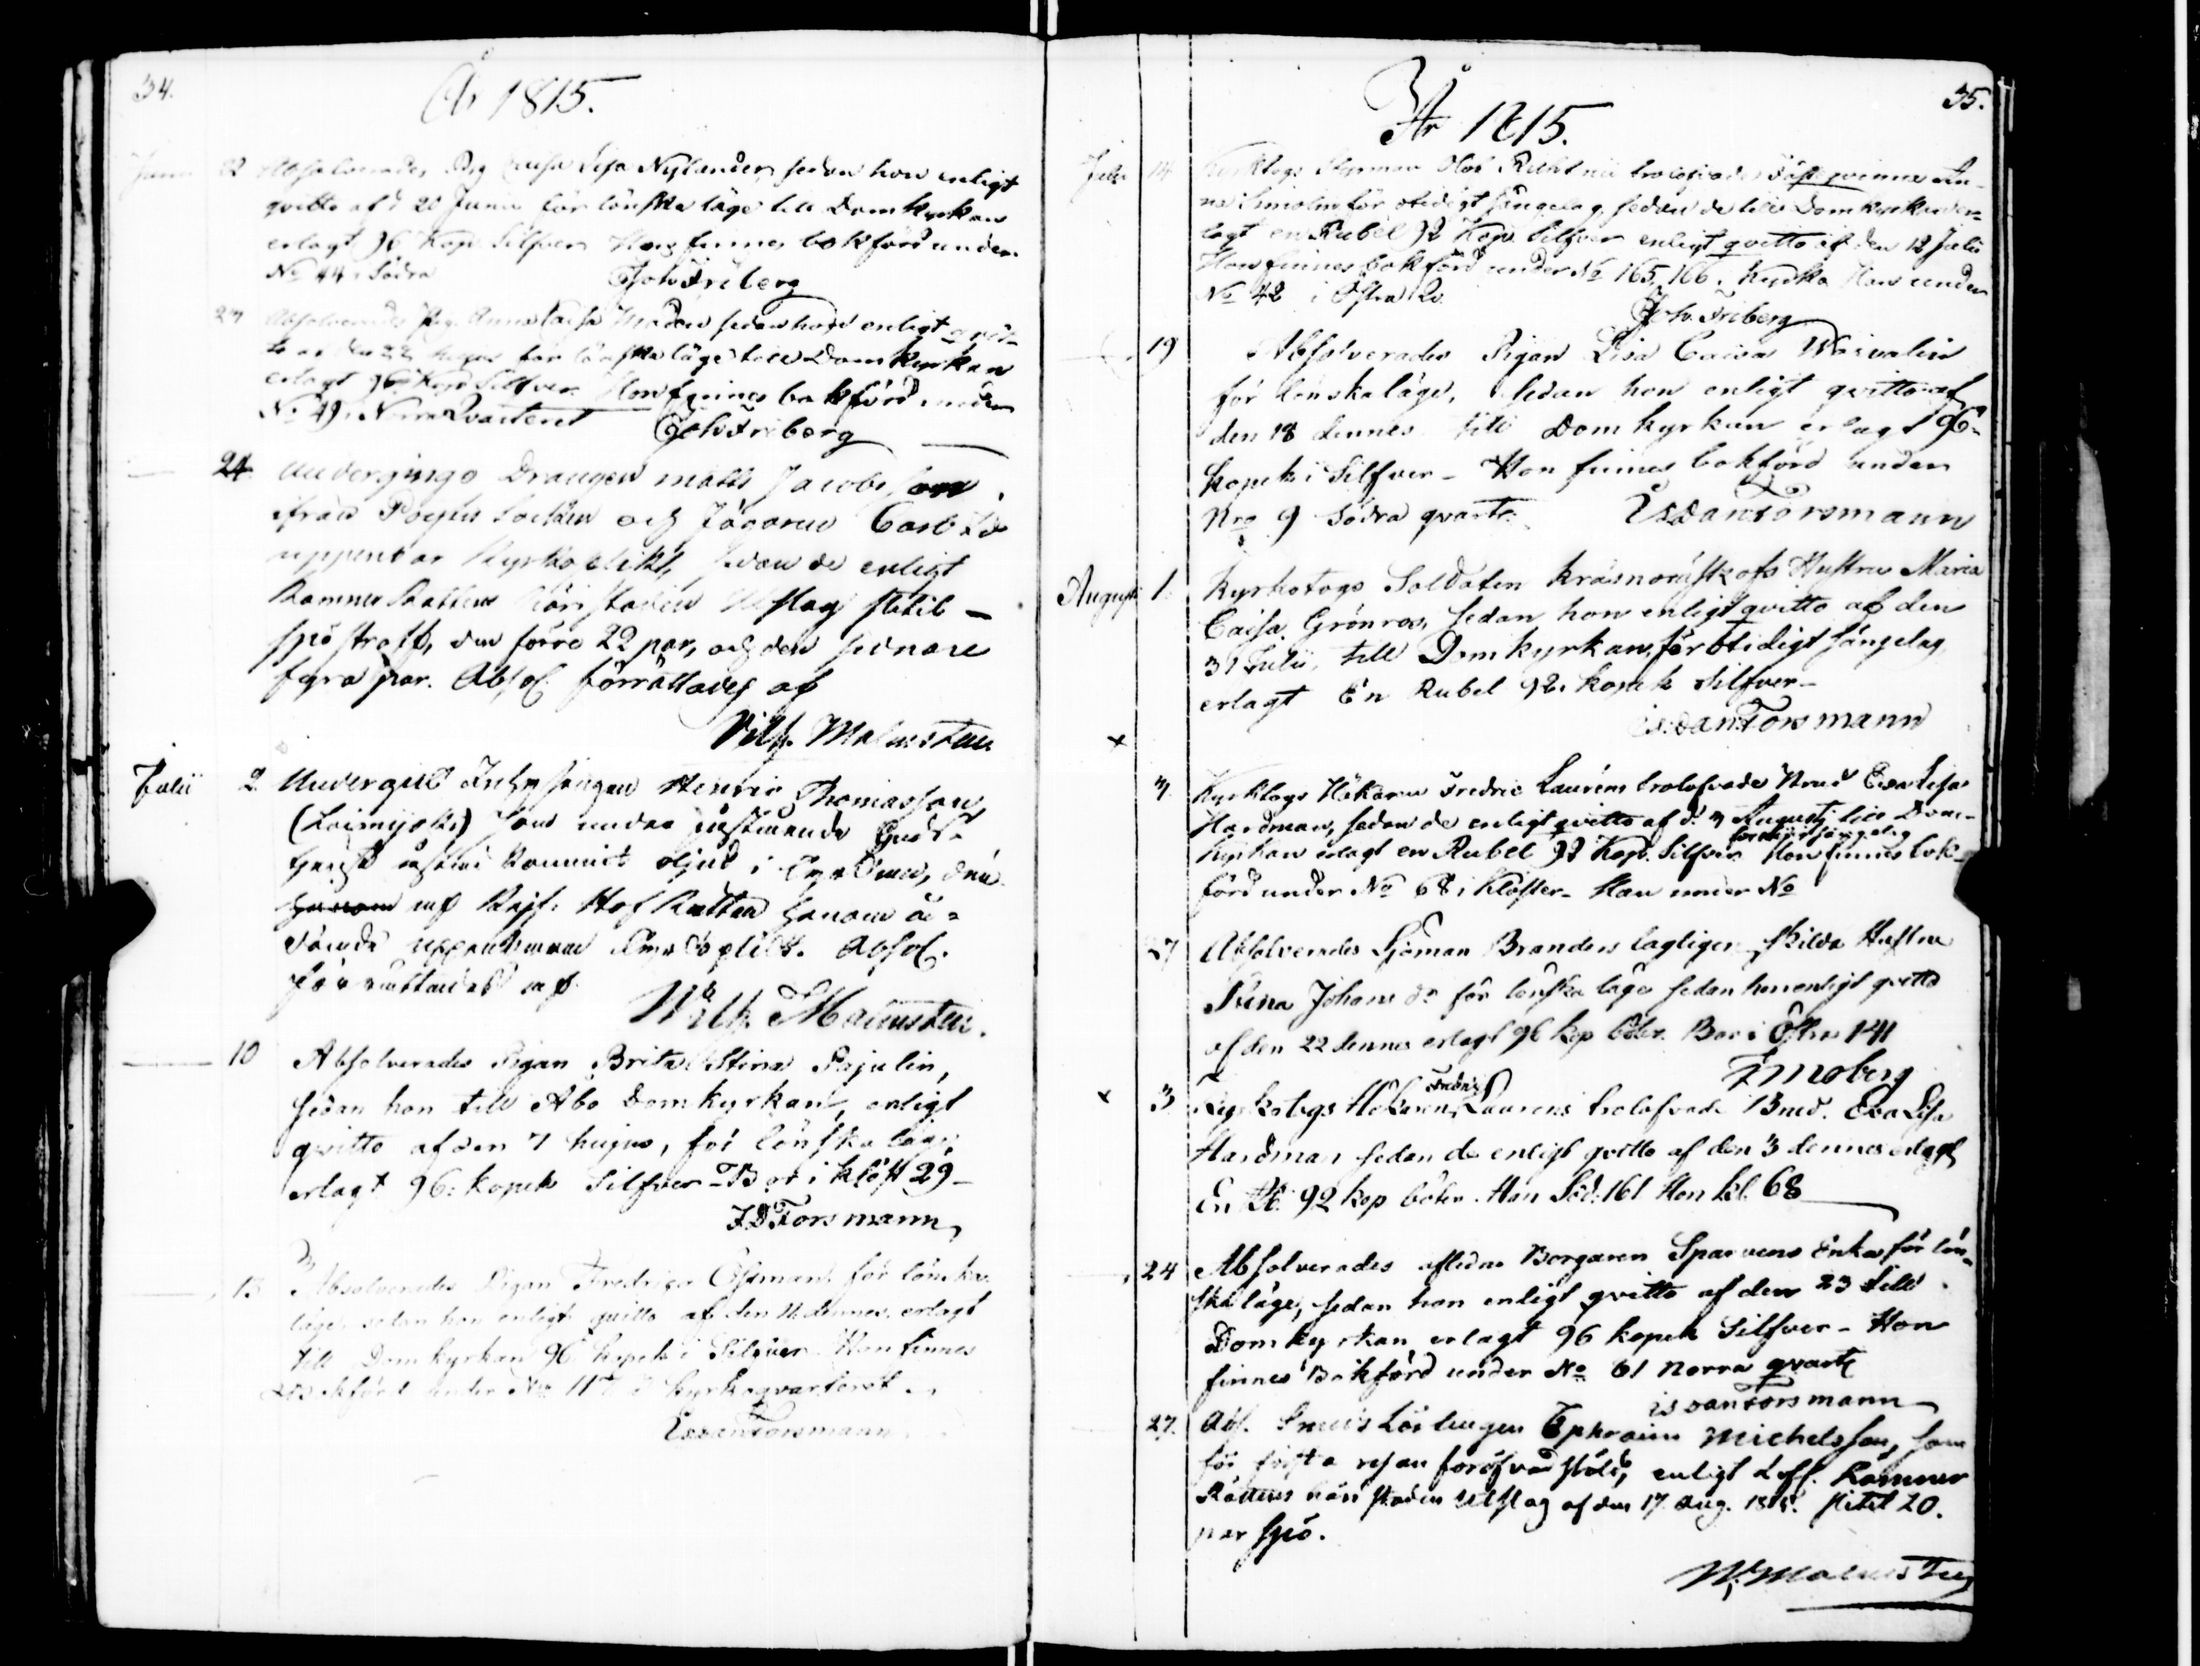 34.
År 1815.
Junii 22 Absolverades Pig. Caisa Lisa Nylander sedan hon enligt
qvitto af d 20 Junii för lönskaläge till Domkyrkan
erlagt 96 Kop. Silfver Hon finnes bokförd under
No 44 i Södra
Joh. Friberg
Absolverades Pig. Anna Caisa sedan hon enligt qvit-
to af den 22 hujus för lönskaläge till Domkyrkan
erlagt 96 Kop Silfver Hon finnes bokförd under
No 49 i Norra Qvarteret
Joh. Friberg
24 Undergingo Drängen Matts Jacobsson
ifrån Pöytis Socken och Carl
uppenbar Kyrkoplikt, sedan de enligt
Kämners Rättens härstädes Utslag slitit
spö straff, den förre 22 par, och den sednare
fyra par. Absol. förrättades af
Wilh. Malmsten
Julii 2 Undergick Inhyses Henric Thomasson
(Loimijoki) som under påstående Guds-
tjenst åstad kommit oljud i Kyrkan, den
genom af Kejs. Hof Rätten honom å-
dömde uppenbara Kyrkoplikt. Absol.
förrättades af
Wilh. Malmsten.
10 Absolverades Pigan Brita Stina Pajulin,
sedan hon till Åbo Domkyrkan, enligt
qvitto af den 7 hujus, för lönskaläge,
erlagt 96: kopek Silfver - Bor i Klöst 29 -
I D Forsmann
13 Absolverades Pigan Fredrica Öhman för lönska-
läge, sedan hon enligt qvitto af den 11 dennes, erlagt
till Domkyrkan 96 kopek i Silfver. Hon finnes
Bokförd under No 117 i Kyrkoqvarteret
Isdan Forsmann
35.
År 1815.
Julii 14 Kyrktogs Olof trolofvade Fästeqvinna An-
na för otidigt sängelag, sedan de till Domkyrkan er-
lagt en Rubel 92 Kop. Silfver enligt qvitto af den 12 Julii
Hon finnes bokförd under No 165, 166. Kyrko Han under
No 42 i Östra Qv.
Joh. Friberg
19 Absolverades Pigan Lisa Caisa
för Lönskaläge, sedan hon enligt qvitto af
den 18 dennes till Domkyrkan erlagt 96
kopek i Silfver - Hon finnes bokförd under
Nro 9 Södra qvarte.
Isdan Forsmann
Augusti 1. Kyrkotogs Soldaten Hustru Maria
Caisa Grönros, sedan hon enligt qvitto af den
31 Julii, till Domkyrkan, för otidigt sängelag
erlagt En Rubel 92. kopek Silfver -
Isdan Forsmann
x
3. Kyrktogs Hökaren Fredric Lauréns trolofvade Brud Eva Lisa
Hardman, sedan de enligt qvitto af d. 3 Augusti till Dom-
kyrkan erlagt en Rubel 92 Kop. Silfver för otidigt sängelag Hon finnes bok-
förd under No 68 i Kloster - Han under No
27 Absolverades Sjöman Branders lagligen skilda Hustru
Stina Johans dr för lönskaläge sedan hon enligt qvitto
af den 22 dennes erlagt 96 kop böter. Bor i Östra 141
F Moberg
x 3 Kyrkotogs Hökaren Fredric Laurens trolofvade Brud. Eva Lisa
Hardman sedan de enligt qvitto af den 3 dennes erlagt
En R. 92 kop böter. Han Söd. 161 Hon kl. 68
24 Absolverades aflidne Borgaren Sparvens Enka för lön-
skaläge, sedan hon enligt qvitto af den 23 till
Domkyrkan erlagt 96 kopek Silfver - Hon
finnes Bokförd under No 61 Norra qvart
Isdan Forsmann
27. Abs. Smeds Lärlingen Ephraim Michelsson, som
för första resan föröfvad stöld, enligt Kämner
Rättens härstädes Utslag af den 17 Aug. 1815. slitit 20.
par spö.
W. Malmsten